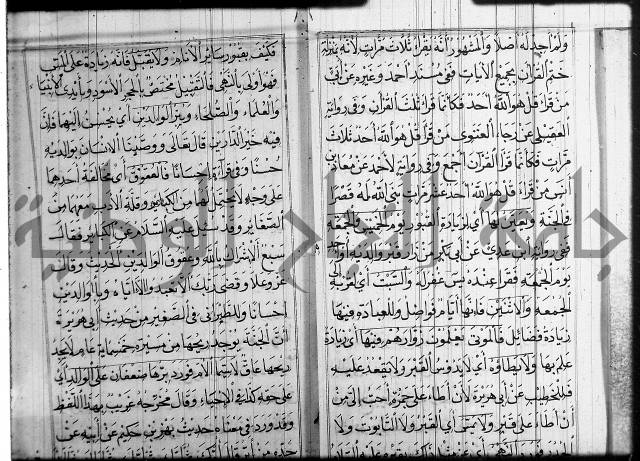 ولم اجد له اصلا والمشهور انه يقرأ ثلاث مرات لانه بمنزلة
ختم القرآن بجميع الآيات ففي مسند احمد وغيره عن ابي
من قرأ قل هو الله احد فكانما قرأ ثلث القرآن وفي رواية
العقيلي عن رجاء الغنوي من قرأ قل هو الله احد ثلاث
مرات فكانما قرأ القرآن اجمع وفي رواية لاحمد عن معاذ بن
انس من قرأ قل هو الله احد عشر مرات بنى الله له قصرا
في الجنة ويعين لها أي لزيارة القبور يوم الخميس والجمعة
ففي رواية ابن عدي عن أبي بكر من زار قبر والديه او احد
يوم الجمعة فقرأ عنده يس غفر له والسبت أي قريبة
الجمعة والاثنين فانها أيام فواضل وللعبادة فيها
زيادة فضائل فالموتى يعلمون زوارهم فيها أي زيادة
علم بها ولا يطأوه أي لا يدوس القبر ولا يقعد عليه
فللخطيب عن ابي هريرة لأن أطأ على جمرة احب الي من
أن أطأ على قبر ولا يمس أي القبر ولا التابوت ولا
فكيف بقبور سائر الأنام ولا يقبل فانه زيادة على المس
فهو اولى بالنهي فالتقبيل مختص بالحجر الأسود وبأيدي الأنبياء
والعلماء والصلحاء ويبر الوالدين أي يحسن اليهما فان
فيه خير الدارين قال تعالى ووصينا الانسان بوالديه
حسنا وفي قراءة احسانا فالعقوق أي مخالفة احدهما
على وجه لا يحتمل لهما من الكبائر وقلة الأدب معهما من
الصغائر وقد سئل عليه السلام عن الكبائر فقال
سبع الاشراك بالله وعقوق الوالدين الحديث وقال
عز وعلا وقضى ربك الا تعبدوا الا اياه وبالوالدين
احسانا وللطبراني في الصغير من حديث ابي هريرة
ان الجنة يوجد ريحها من مسيرة خمسمائة عام لا يجد
ريحها عاق لا سيما الام فورد برها ضعفان على الوالد أي
على حقه كذا في الاحياء وقال مخرجه غريب بهذا اللفظ
وقد ورد في معناه حديث بهز بن حكيم عن أبيه عن
جامعة النجاح الوطنية